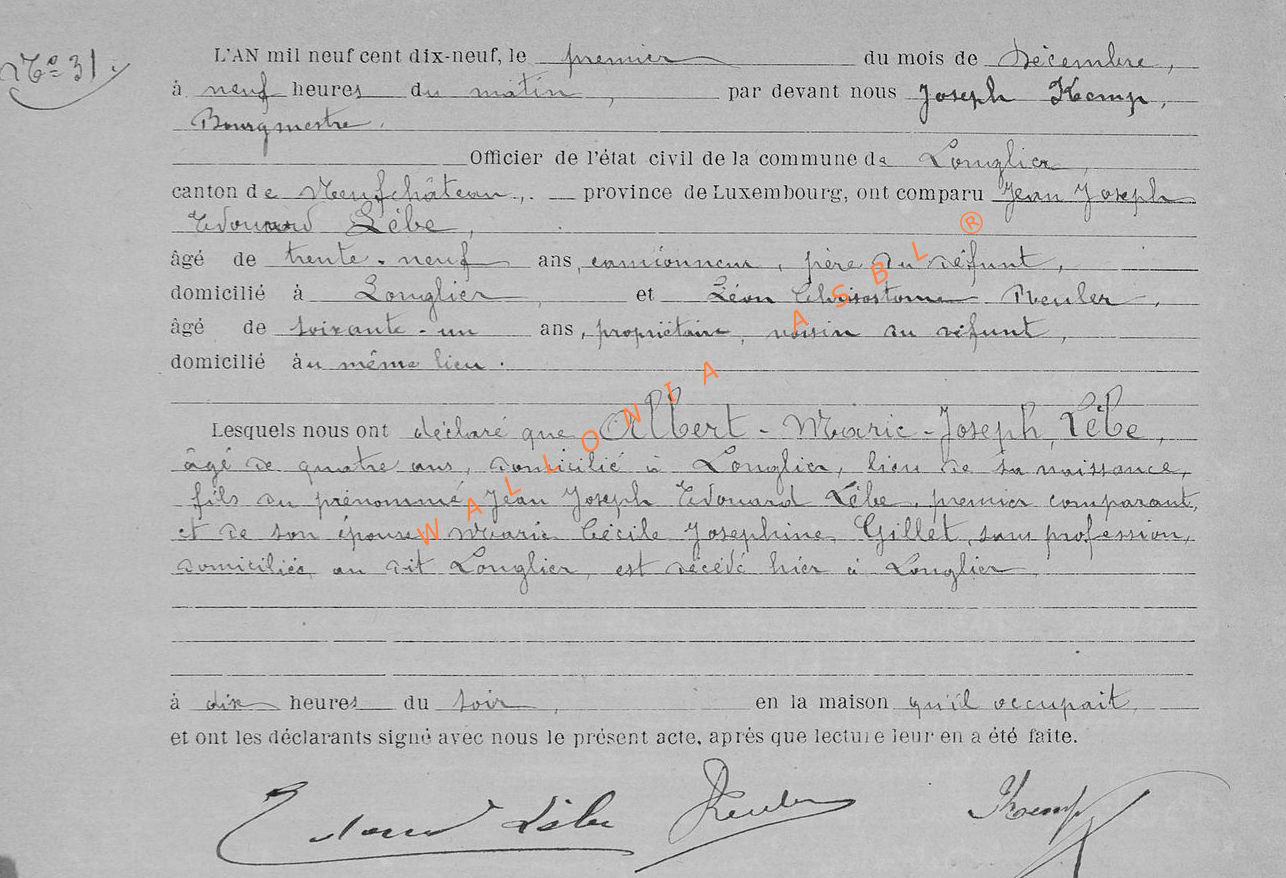 N° 31.
L'AN mil neuf cent dix-neuf, le premier du mois de Décembre,
à neuf heures du matin, par devant nous Joseph Kemp,
Bourgmestre.
Officier de l'état civil de la commune de Longlier,
canton de Neufchâteau, province de Luxembourg, ont comparu Jean Joseph
Edouard Lèbe,
âgé de trente-neuf ans, camionneur, père du défunt,
domicilié à Longlier, et Léon Chrisostome
âgé de soixante-un ans, propriétaire, voisin du défunt,
domicilié au même lieu.
Lesquels nous ont déclaré que Albert-Marie-Joseph Lèbe,
âgé de quatre ans, domicilié à Longlier, lieu de sa naissance,
fils du prénommé Jean Joseph Edouard Lèbe, premier comparant,
et de son épouse Marie Cécile Josephine Gillet, sans profession,
domiciliés au dit Longlier, est décédé hier à Longlier
à dix heures du soir, en la maison qu'il occupait,
et ont les déclarants signé avec nous le présent acte, après que lecture leur en a été faite.
Edouard Lèbe Kemp
WALLONIA ASBL ®